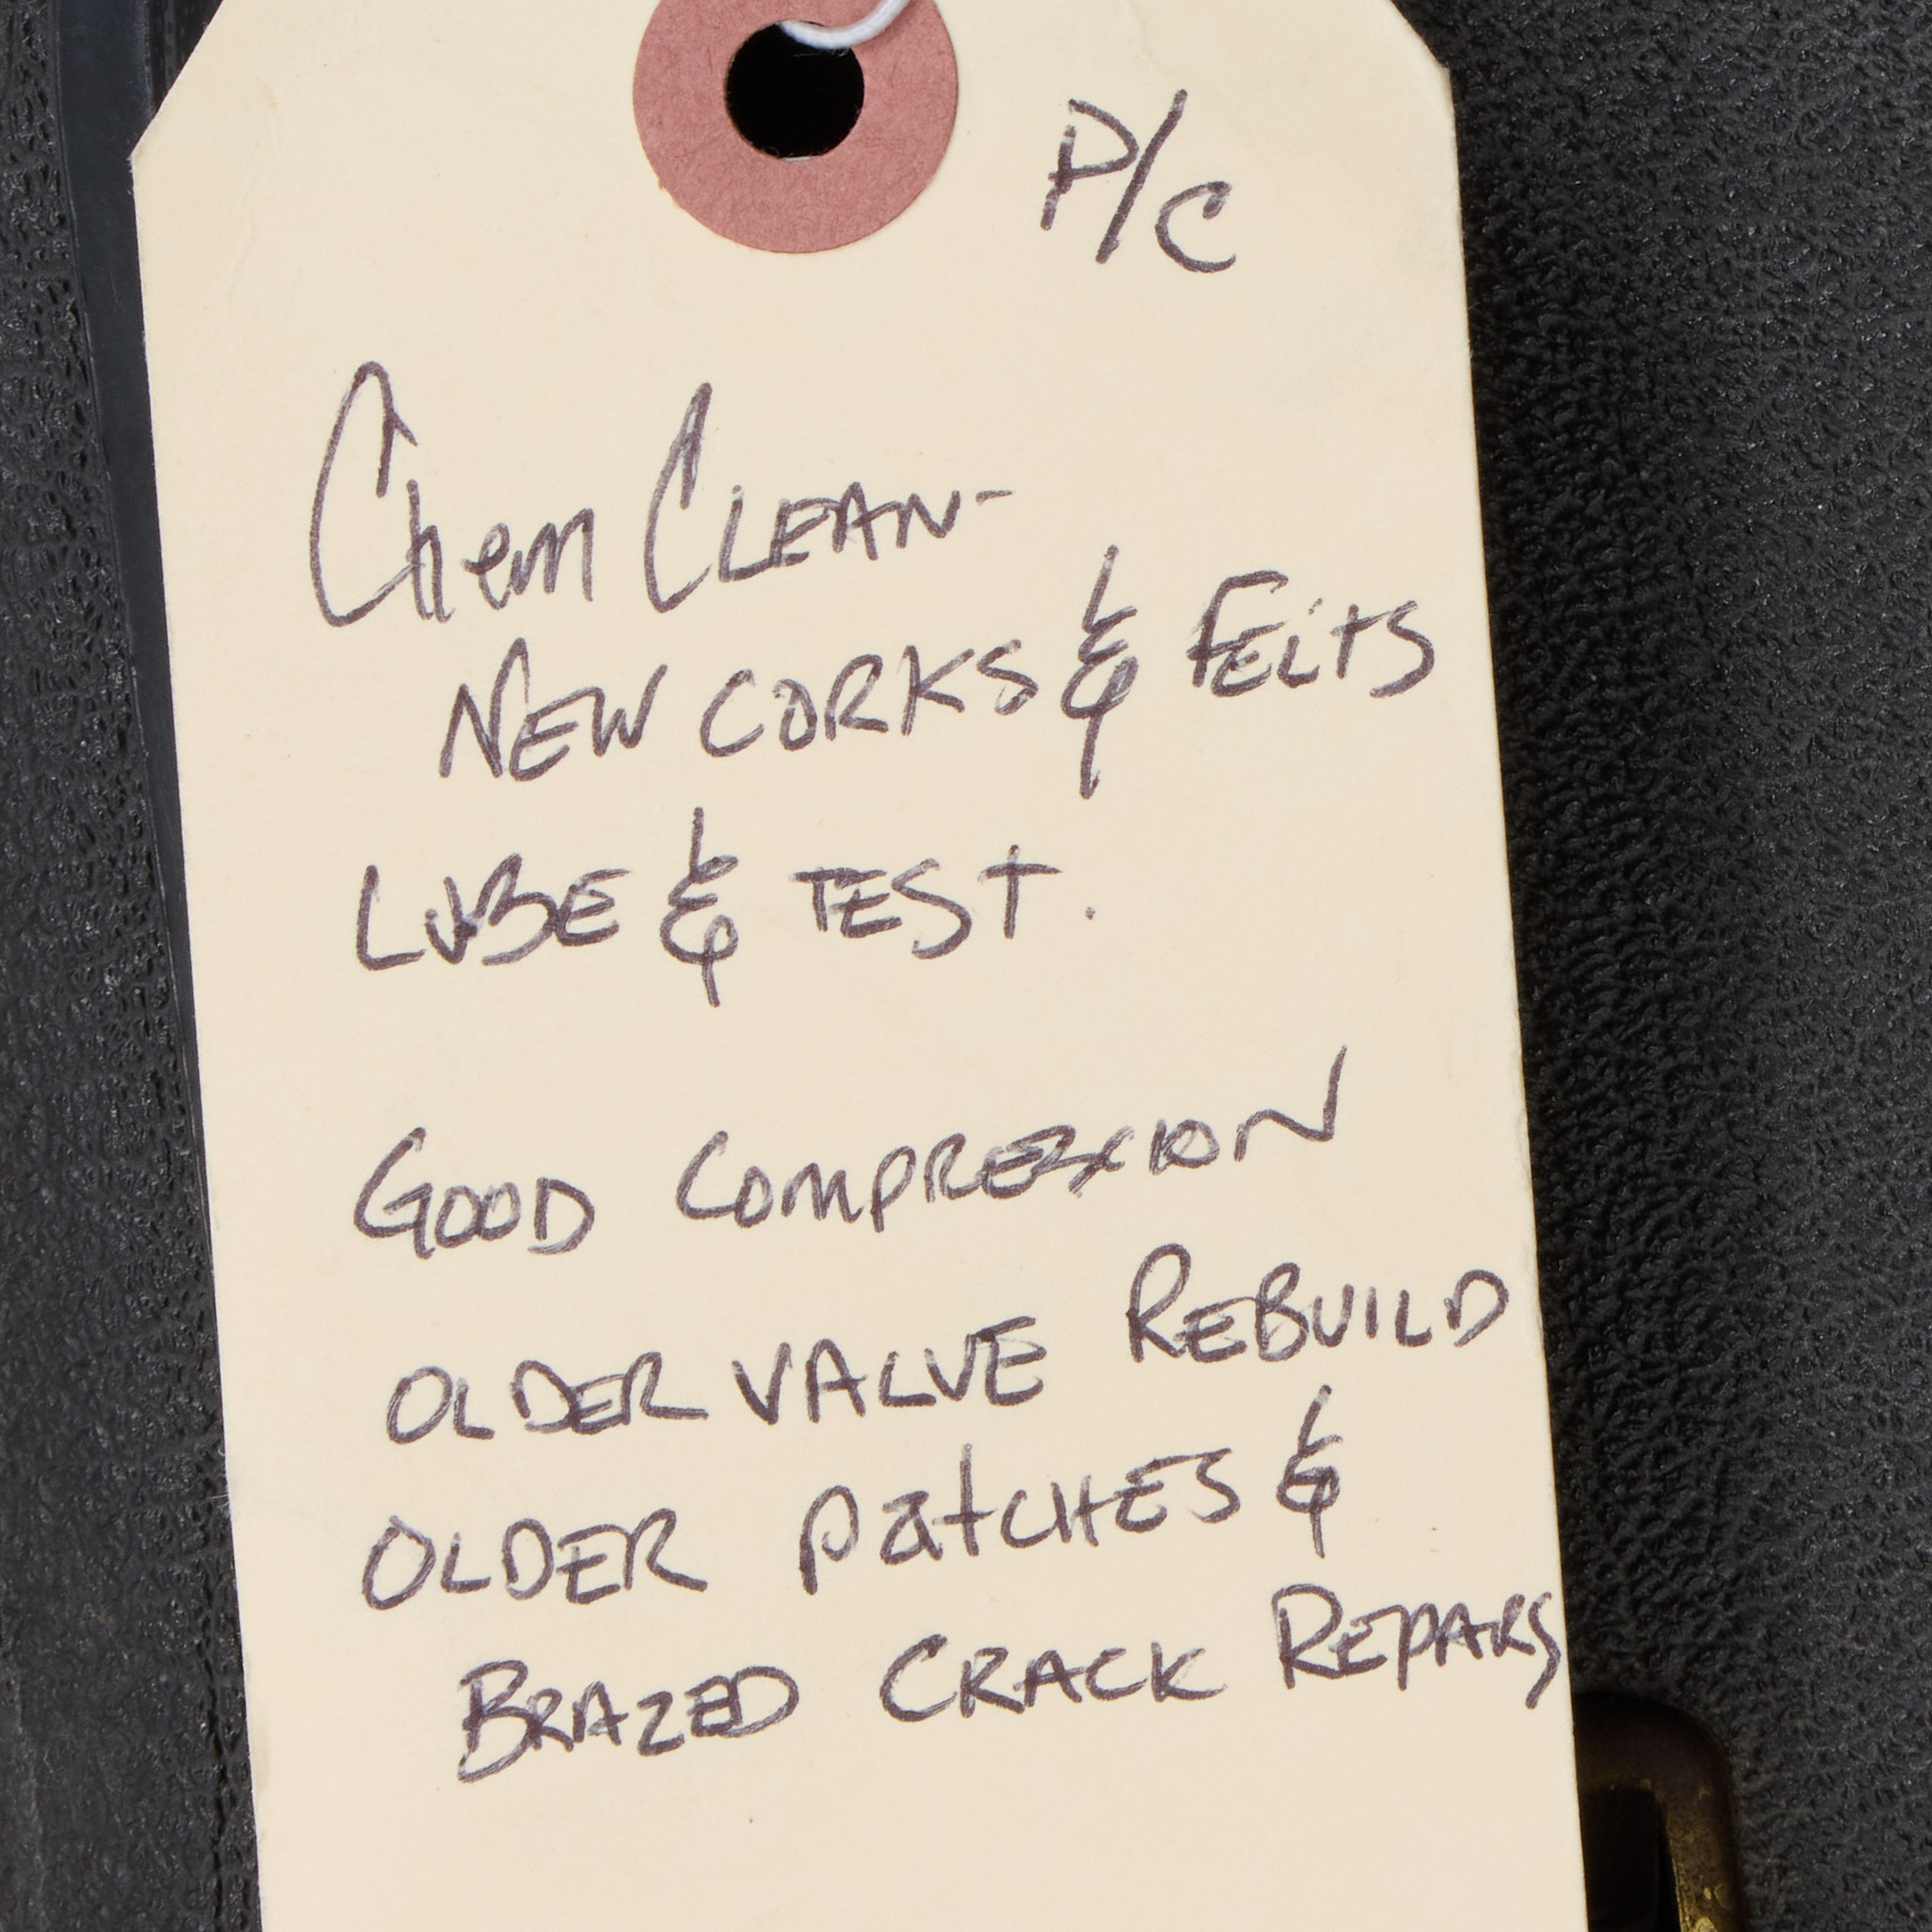 P/C
Chem CLEAN-
NEW CORKS & FELTS
LUBE & TEST.
GOOD COMPRESSION
OLDER VALVE REBUILD
OLDER PATCHES &
BRAZED CRACK REPARS